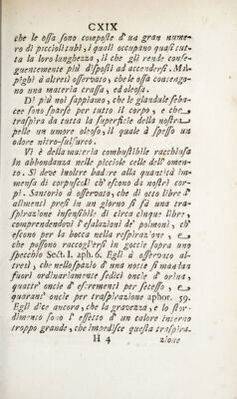 CXIX
che le ossa sono composte d'un gran nume-
ro di piccioli tubi, i quali occupano quasi tut-
ta la loro lunghezza, il che gli rende conse-
guentemente più disposti ad accendersi. Mal-
pighi à altresì osservato, che le ossa contengo-
no una materia crassa, ed oleosa.
Di più noi sappiamo, che le glandule seba-
cee sono sparse per tutto il corpo, e che
traspira da tutta la superficie della nostra
pelle un umore oleoso, il quale à spesso un
odore nitro-sulfureo.
Vi è della materia combustibile racchiusa
in abbondanza nelle picciole celle dell' omen-
to. Si deve inoltre badare alla quantità im-
mensa di corpuscoli ch' escono da nostri cor-
pi. Santorio à osservato, che di otto libre d'
alimenti presi in un giorno si fà una tra-
spirazione insensibile di circa cinque libre,
comprendendovi l'esalazioni de' polmoni, ch'
escono per la bocca nella respirazione, e
che possono raccogliersi in goccie sopra uno
specchio Sect. I. aph. 6. Egli à osservato al-
tresì, che nello spazio d' una notte si mandan
fuori ordinariamente sedici oncie d' orina,
quattr' oncie d' escrementi per secesso, e
quarant' oncie per traspirazione aphor. 59.
Egli dice ancora, che la gravezza, e lo stor-
dimento sono l' effetto d' un calore interno
troppo grande, che impedisce questa traspira-
H 4 zione